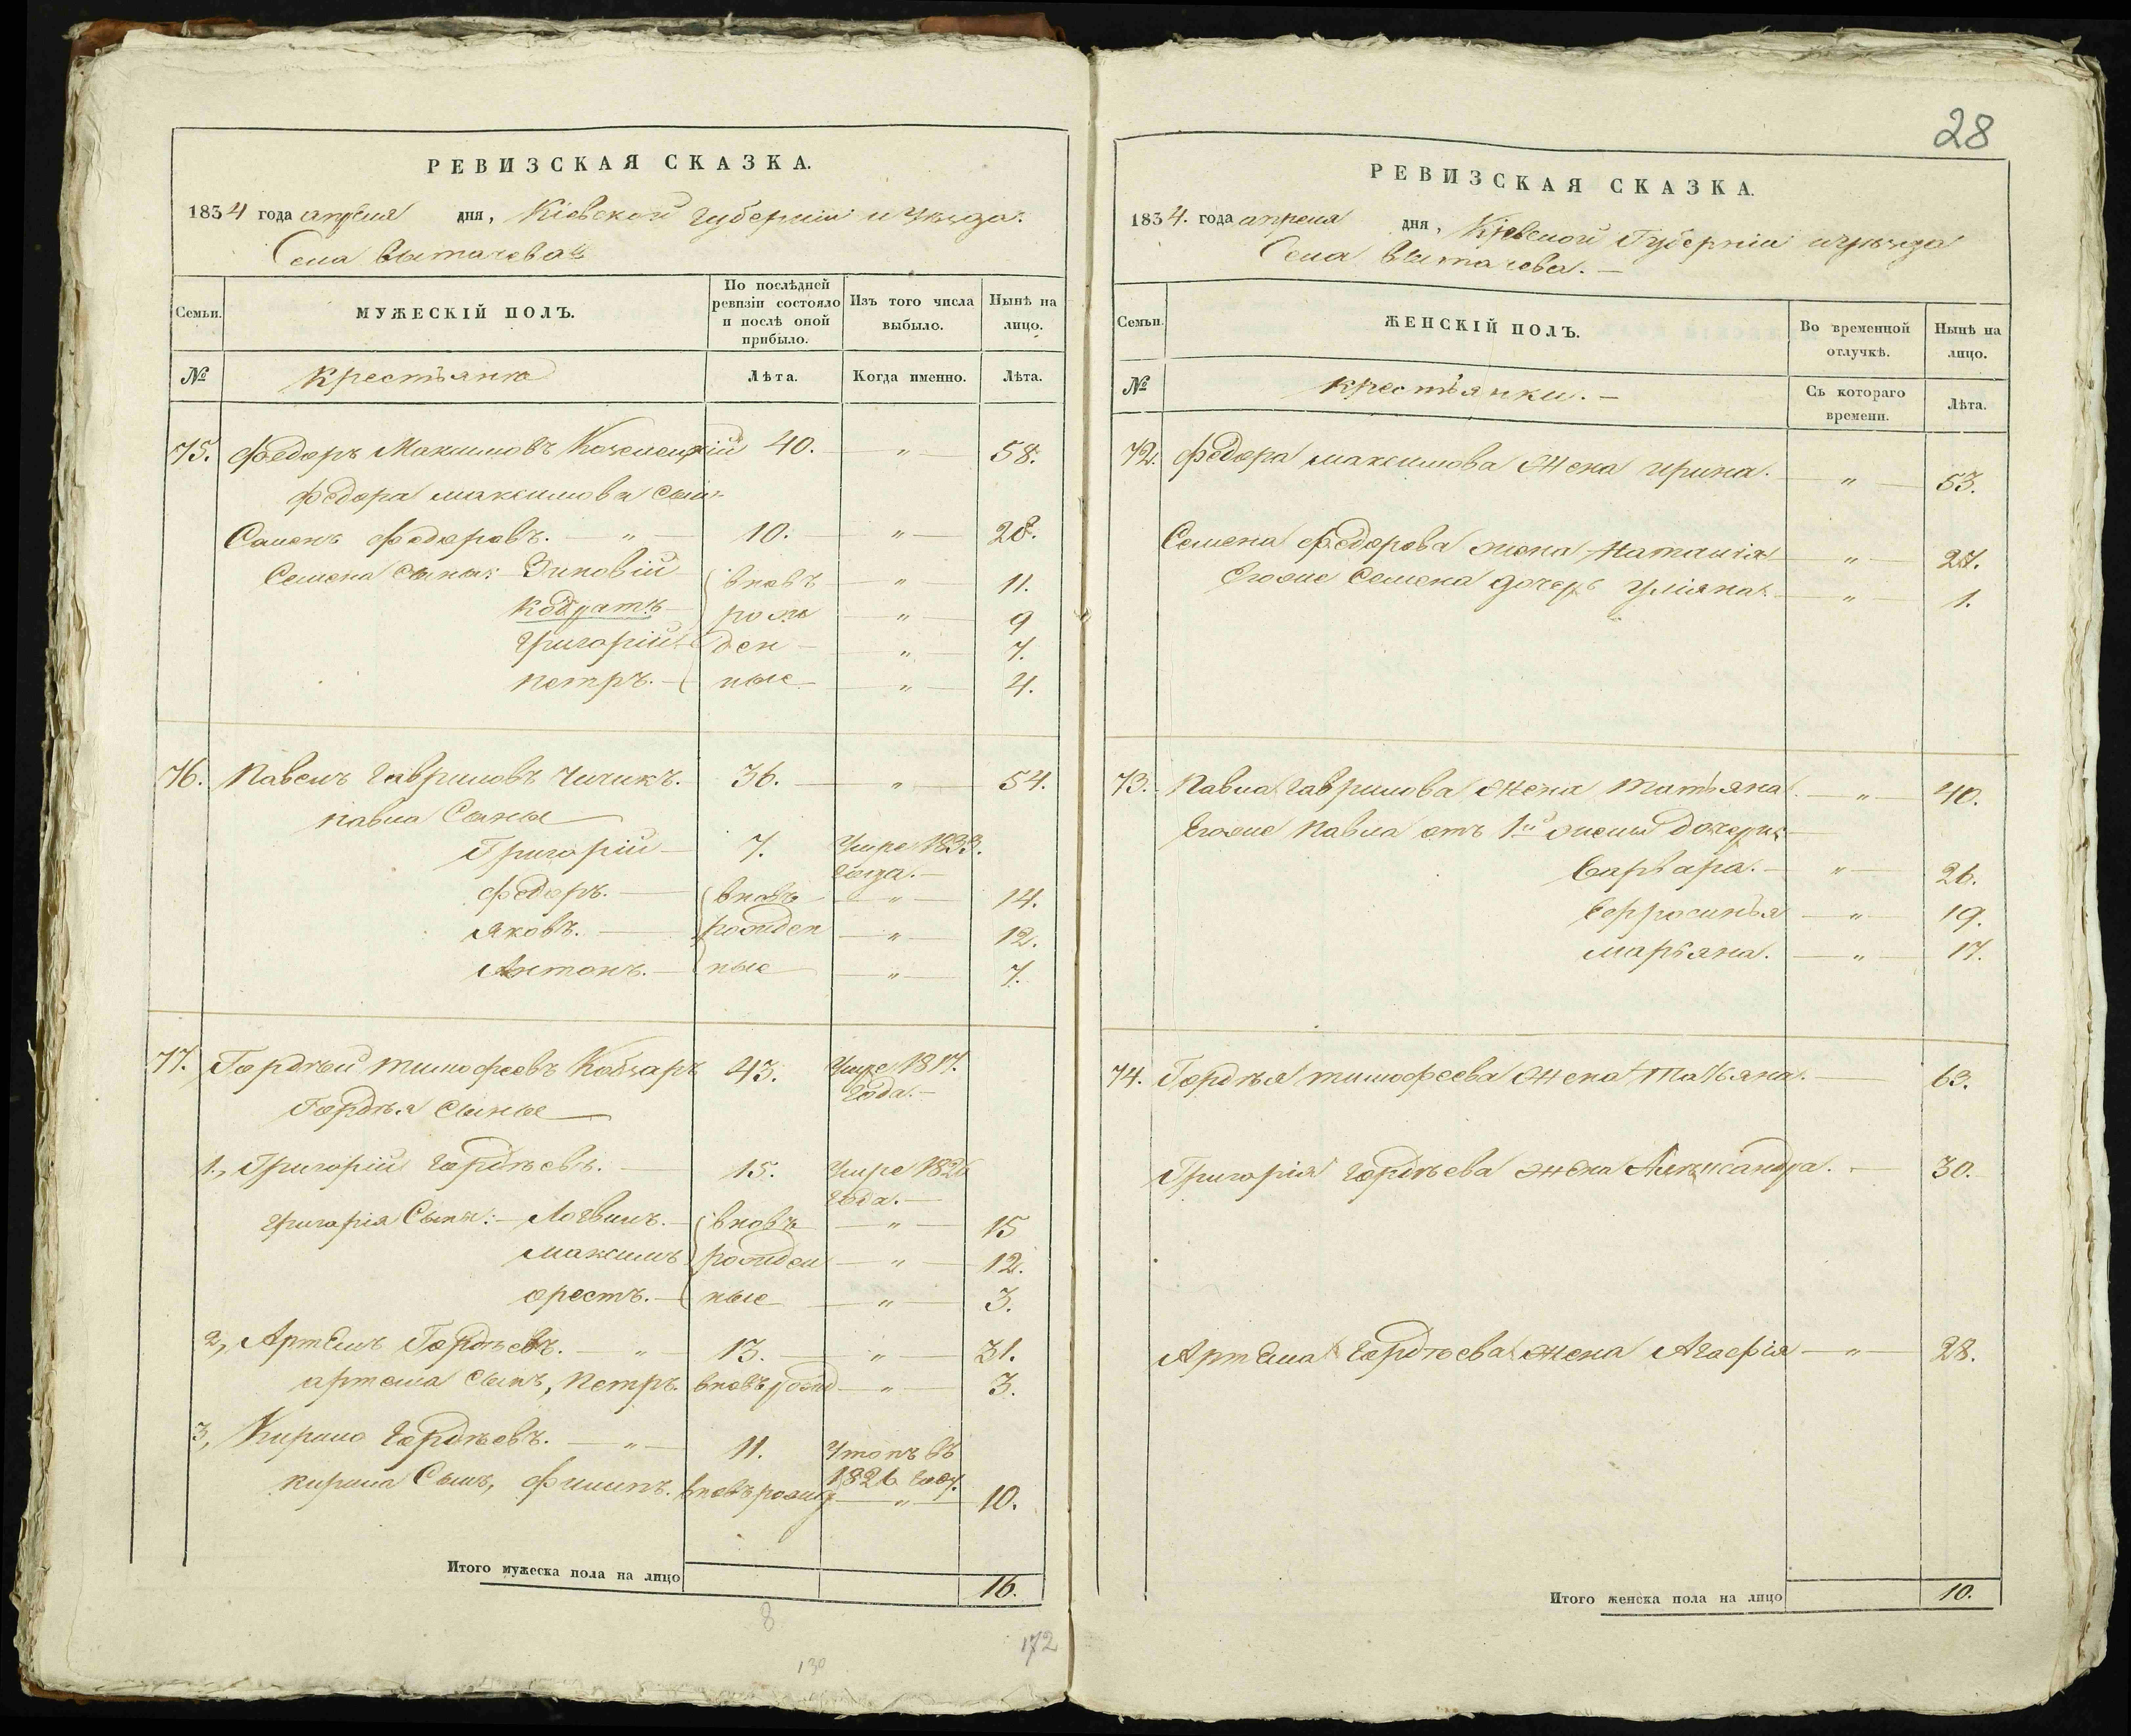 РЕВИЗСКАЯ СКАЗКА.
1834 года апреля дня, Кіевской губерніи и уѣзда.
Села Вытачева
Семьи. МУЖЕСКІЙ ПОЛЪ. По послѣдней ревизіи состояло и послѣ оной прибыло. Изъ того числа выбыло. Нынѣ на лицо.
№ Крестьяне Лѣта. Когда именно. Лѣта.
75. Федоръ Максимовъ 40. " 58.
Федора Максимова сын
Семенъ Федоровъ. " 10. " 28.
Семена сыны: Зиновій вновъ " 11.
Кодратъ рож " 9
Григорій ден " 7.
Петръ. ные " 4.
76. Павелъ Гавриловъ Чичикъ. 36. " 54.
Павла Сыны
Григорій 7. Умре 1833.
года.
Федоръ. вновь " 14.
Яковъ. рожден " 12.
Антонъ. ные " 7.
77. Гордѣй Тимофеевъ Кобзаръ 43. Умре 1817.
Гордѣя Сыны года.
1., Григорій Гордѣевъ. 15. Умре 1826
года.
Григорія Сыны: Логвинъ. вновь " 15
Максимъ рожден " 12.
Орестъ. ные " 3.
2, Артемъ Гордѣевъ. " 13. " 31.
Артема Сынъ, Петръ. вновь рожд " 3.
3, Кирило Гордѣевъ. " 11. Утопъ въ
1826 году.
Кирила Сынъ, Филипъ. вновь рожд " 10.
Итого мужеска пола на лицо 16.
8
130
172
28
РЕВИЗСКАЯ СКАЗКА.
1834. года апреля дня, Кіевской Губерніи и уѣзда
Села Вытачева.
Семьи. ЖЕНСКІЙ ПОЛЪ. Во временной отлучкѣ. Нынѣ на лицо.
№ Крестьянки. Съ котораго времени. Лѣта.
72. Федора Максимова Жена Ирина. " 53.
Семена Федорова жена Наталія " 27.
Егоже Семена дочерь Уліяна. " 1.
73. Павла Гаврилова Жена Татьяна. " 40.
Егоже Павла отъ 1й жены дочери:
Варвара. " 26.
Ефросинья " 19.
Марьяна. " 17.
74. Гордѣя Тимофеева Жена Татьяна. 63.
Григорія Гордѣева жена Александра. 30.
Артема Гордѣева жена Агафія " 28.
Итого женска пола на лицо 10.